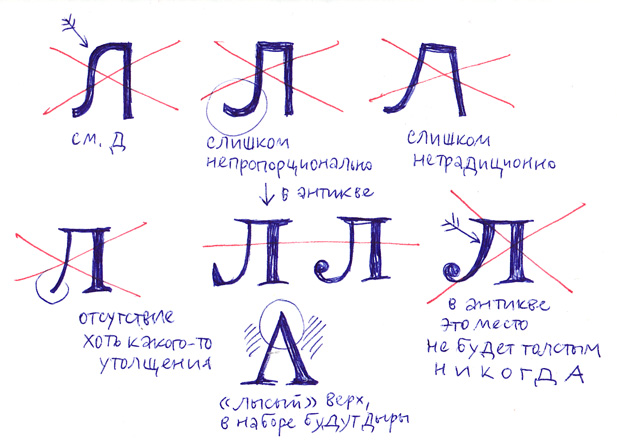 Л Л Л
см. Д
слишком
непропорционально
слишком
нетрадиционно
в антикве
Л Л Л Л
отсутствие
хоть какого-то
утолщения
Л
«лысый» верх,
в наборе будут дыры
в антикве
это место
не будет толстым
НИКОГДА